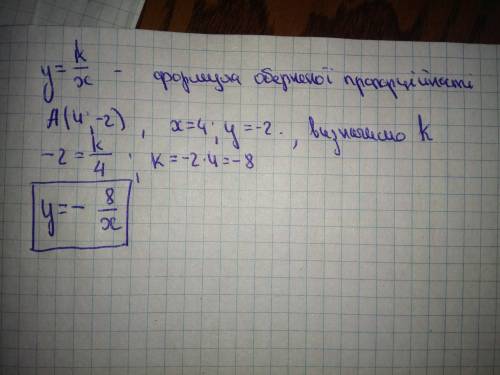 y = k/x – формула оберненої пропорційності
A(4; -2), x=4; y=-2., визначаємо k
-2 = k/4; k=-2·4=-8
y = - 8/x